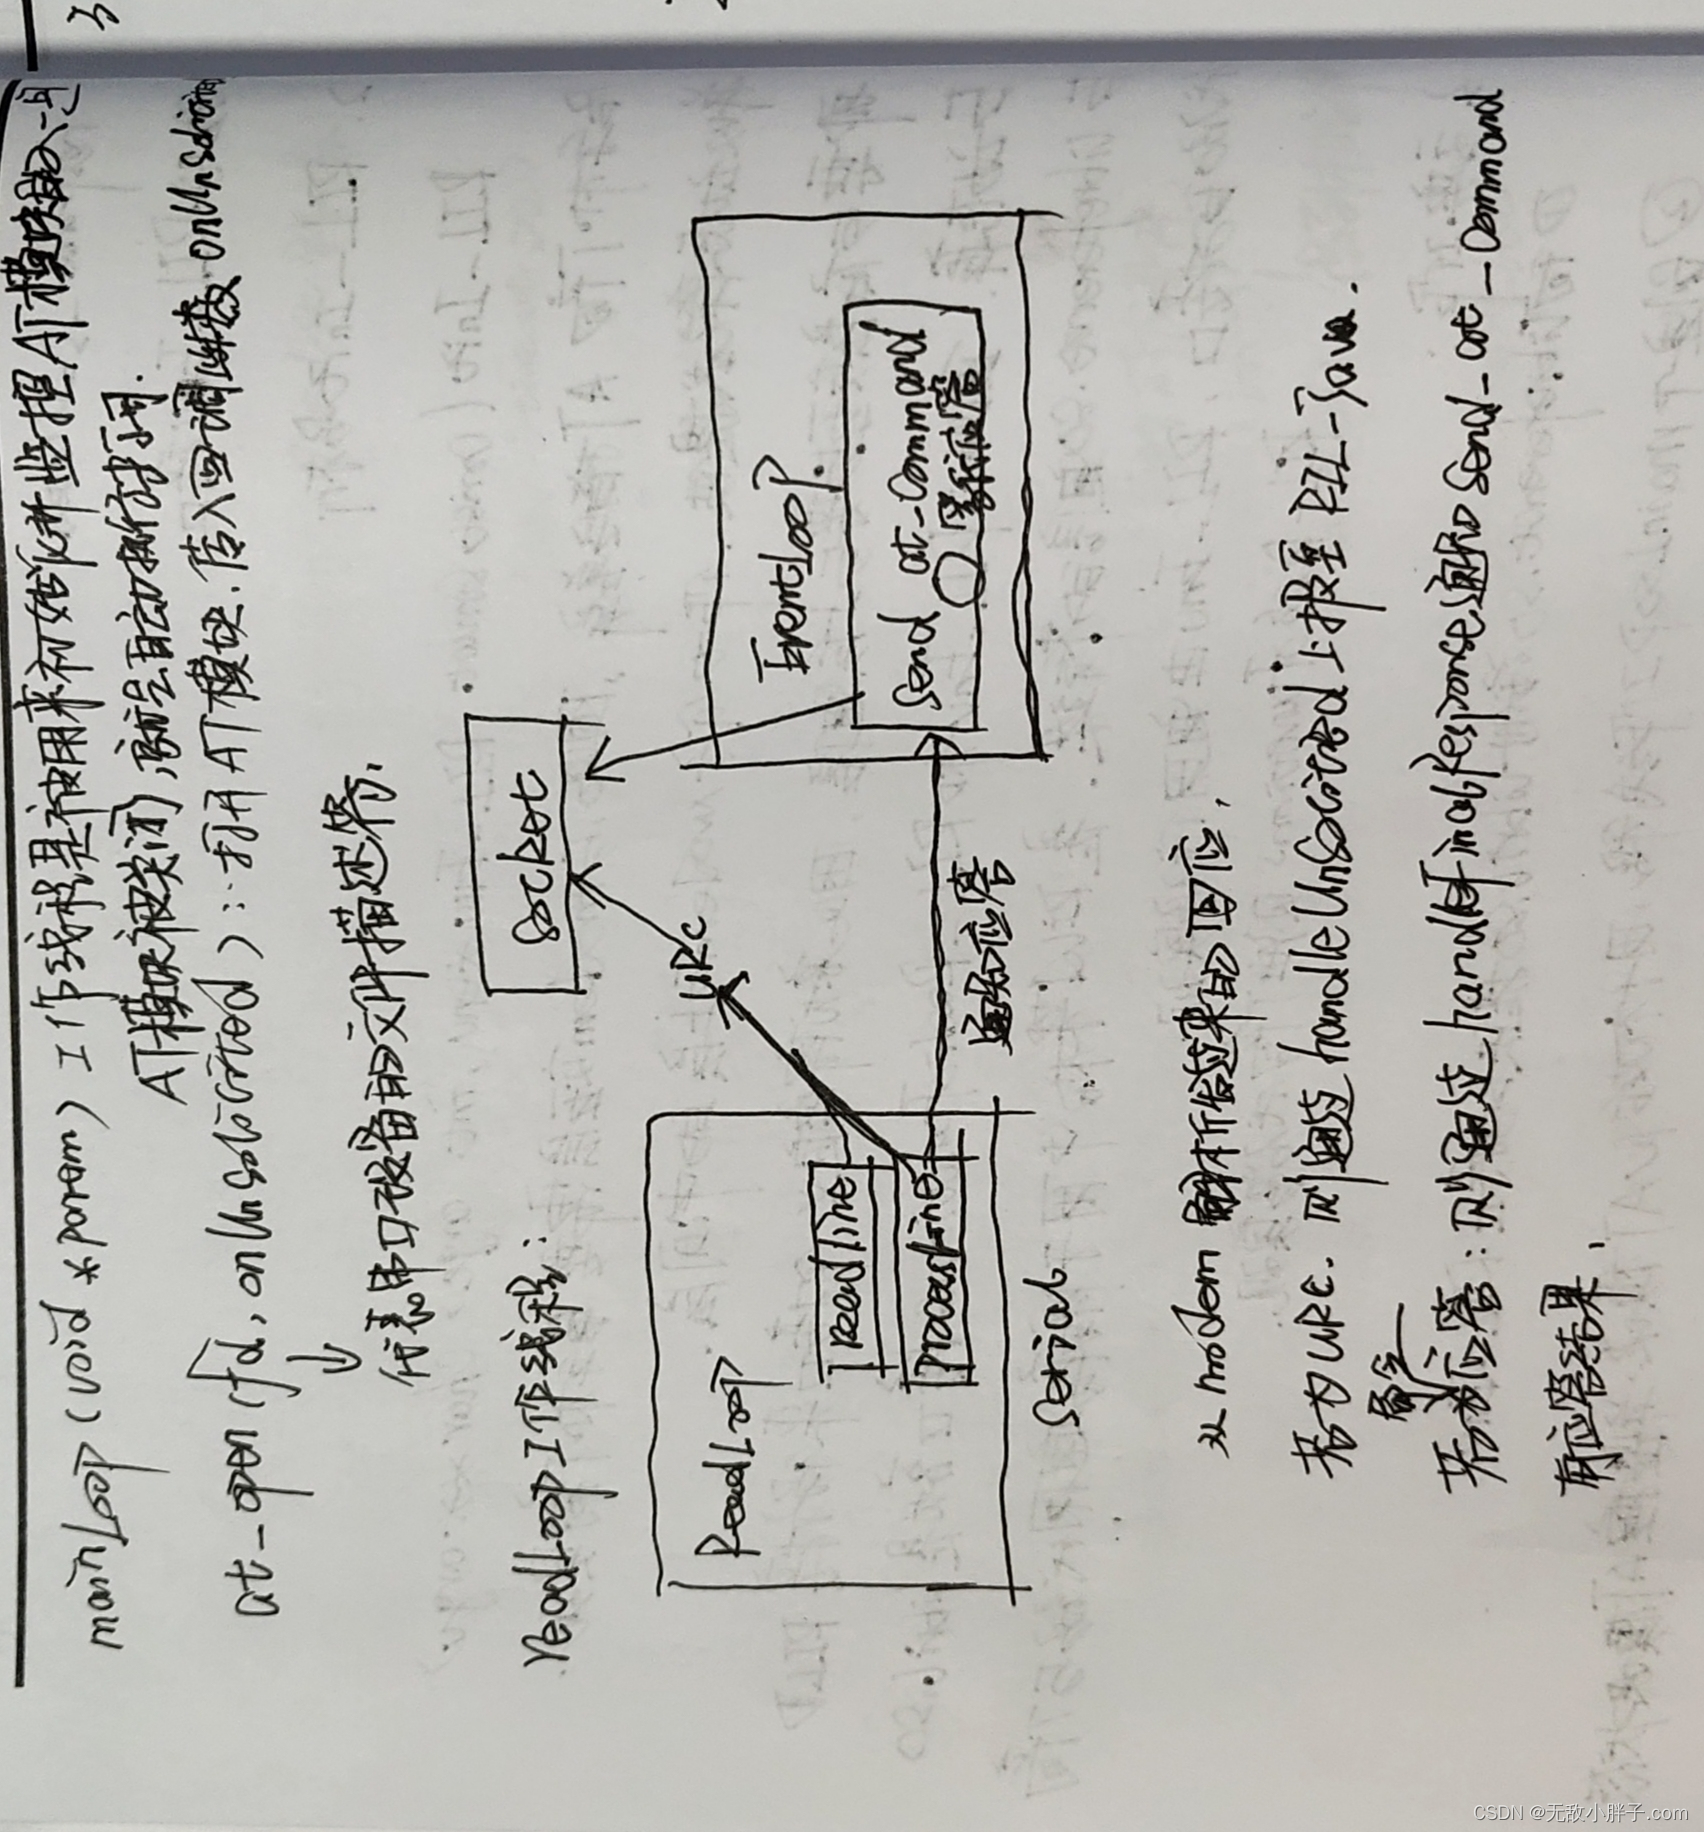 mainLoop (void *param) 工作线程是被用来初始化并监控AT模块的,一旦
AT模块被关闭,就会自动执行打开.
at-open (fd, onUnsolicited): 打开AT模块.传入回调函数 onUnsolicited
↓
代表串口设备的文件描述符,
readLoop工作线程:
socket
ReadLoop
readline
processLine
URC
EventLoop.
Send at-Command
等待应答
通知应答
Serial
从modem解析出来的回应,
若为URC.则通过handleUnsolicited上报至RIL-Java.
最终
若为应答:则通过handleFinalResponse通知Send-at-Command
有应答结果,
CSDN @无敌小胖子.com